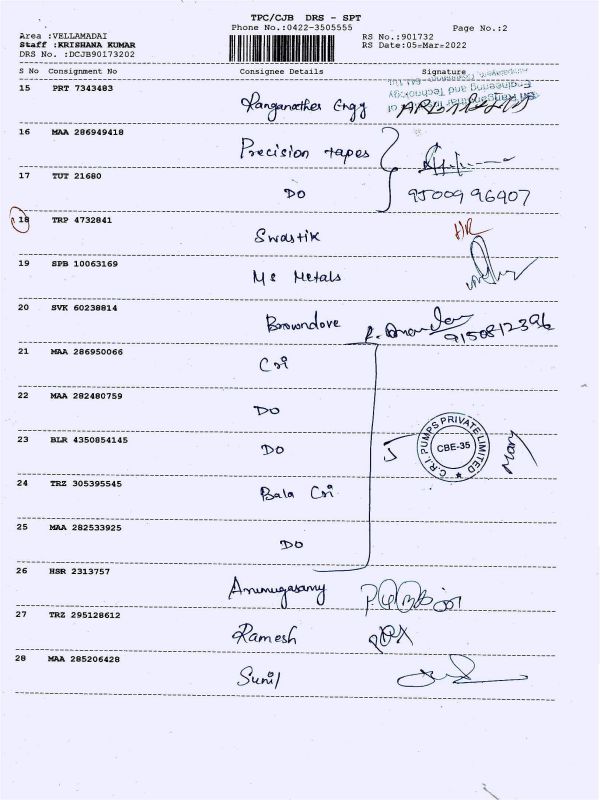 TPC/CJB DRS - SPT
Phone No.:0422-3505555 Page No.:2
Area :VELLAMADAI RS No.:901732
Staff :KRISHANA KUMAR RS Date:05-Mar-2022
DRS No. :DCJB90173202
S No Consignment No Consignee Details Signature
15 PRT 7343483
Ranganathar Engg
Engineering and Technology
16 MAA 286949418
Precision tapes
17 TUT 21680
DO 95009 96907
18 TRP 4732841
Swastik
19 SPB 10063169
MS Metals
20 SVK 60238814
Browndove 9150812396
21 MAA 286950066
Cri
22 MAA 282480759
DO
23 BLR 4350854145
DO 5 C.R.I. PUMPS PRIVATE LIMITED CBE-35
24 TRZ 305395545
Bala Cri
25 MAA 282533925
DO
26 HSR 2313757
Arumugasamy
27 TRZ 295128612
Ramesh
28 MAA 285206428
Sunil